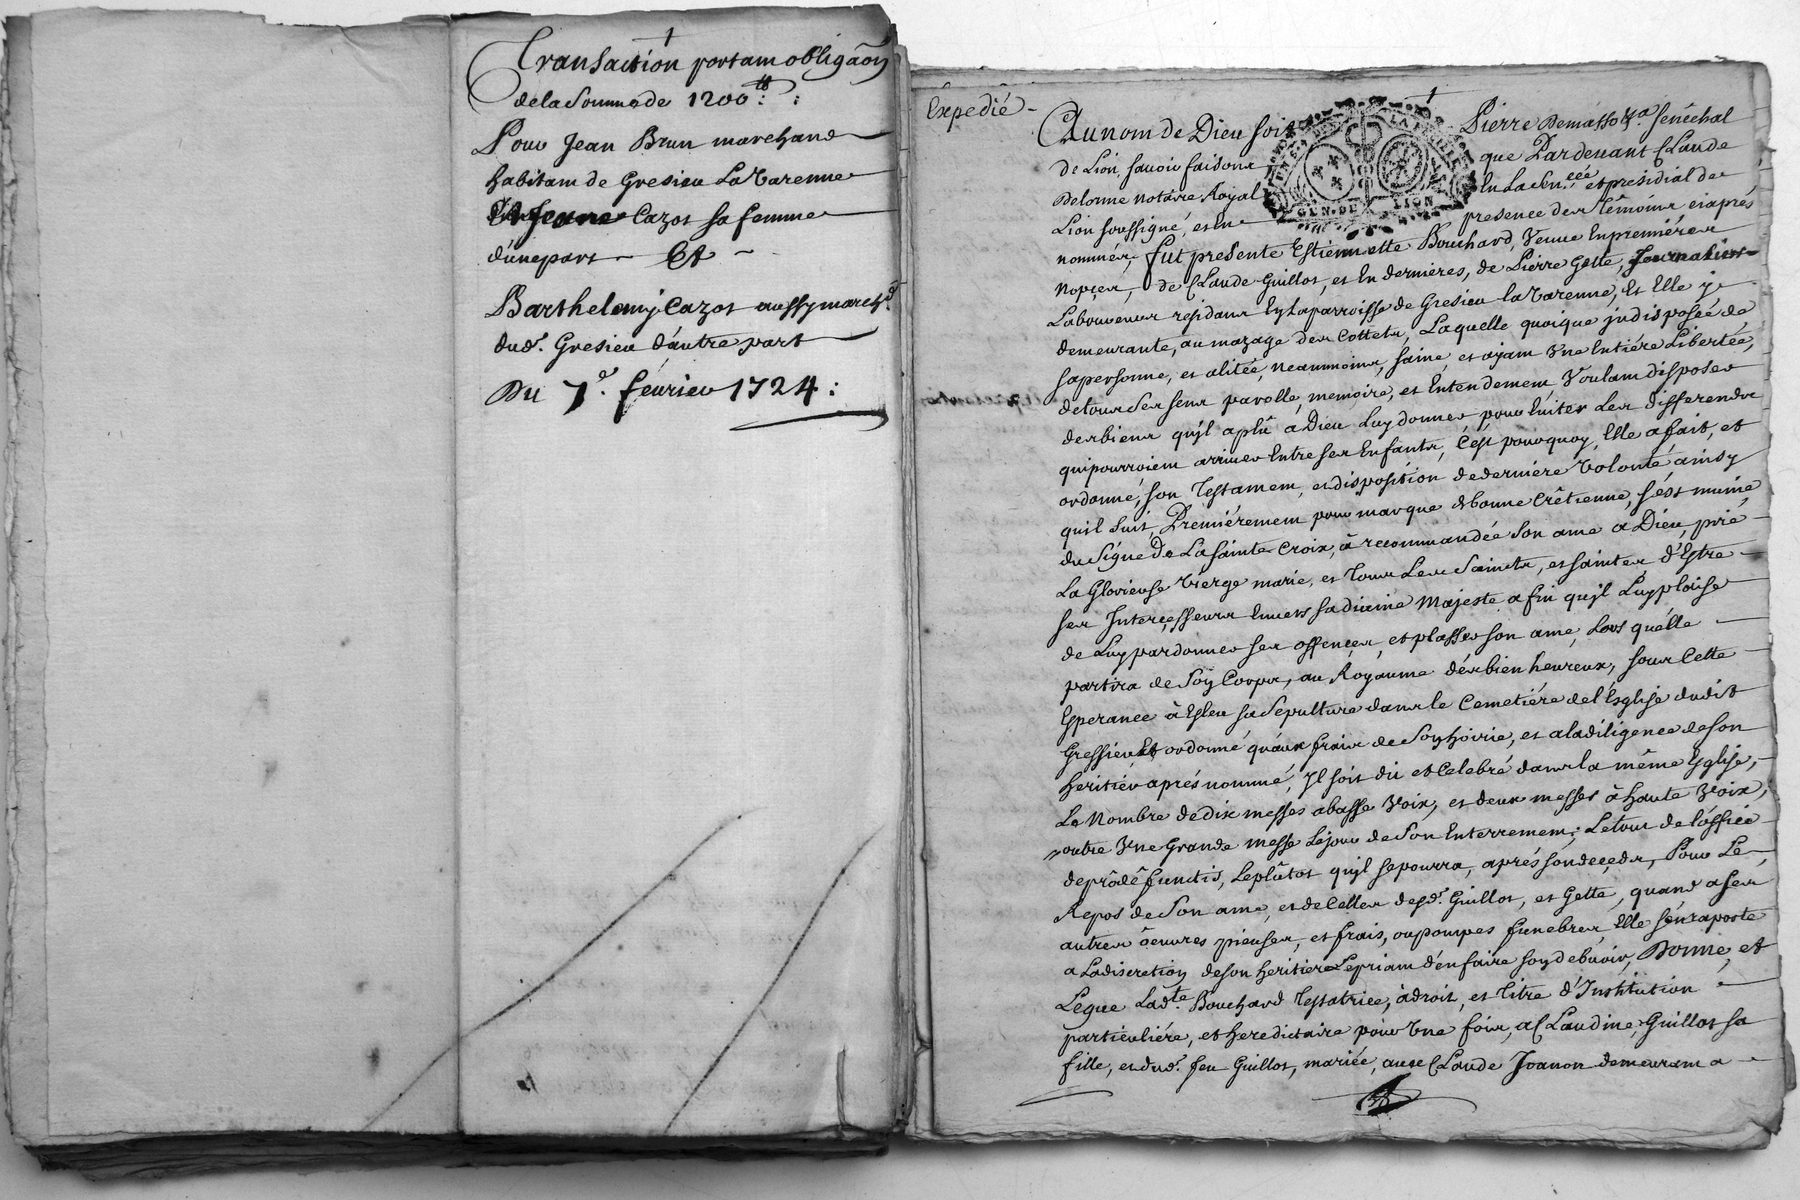 Transaction portant obligãon
de la Somme de 1200ᵗᵗ :
Pour Jean Brun marchand
habitant de Gresieu La Varenne
Et Jeane Cazot sa femme
d'une part Et
Barthelemy Cazot aussy march.ᵈ
dud. Gresieu d'autre part
Du 7.ᵉ fevrier 1724 :
Expedié
Au nom de Dieu soit Pierre Demasso ... Senéchal
de Lion, savoir faisons que Pardevant Claude
Delorme notaire Royal En La Sen.ᶜᵉᵉ et presidial de
GEN. DE LION
Lion soussigné, et en presence des têmoins ciaprés
nommés, fut presente Estiennette Bouchard, Veuve En premiéres
Nopçes, de Claude Guillot, et En dernieres, de Pierre Gette, Journalier
Laboureur residans En La parroisse de Gresieu la Varenne, Et Elle y
demeurante, au mazage des Cottets, Laquelle quoique jndisposée de
sa personne, et alitée, neanmoins, saine, et ayant Vne Entiére Libertée,
de tous Ses sens parolle, memoire, et Entendement, Voulant disposer
des biens qu'jl a plû a Dieu Luy donner pour Euiter Les differends
qui pourroient arriver Entre ses Enfants, C'est pourquoy, Elle a fait, et
ordonné, son Testament, et disposition de derniére Volonté ainsy
quil suit, Premiérement pour marque de bonne Crêtienne, s'est munie
du Signe De La Sainte Croix, à recommandée Son ame a Dieu, prié
La Glorieuse Vierge marie, et Tous Les Saincts, et saintes d'Estre
ses Interçesseurs Envers sa divine Majesté afin qu'jl Luy plaise
de Luy pardonner ses offençes, et plasser son ame, Lors quelle
partira de Son Corps, au Royaume des bien heureux, sous Cette
Esperance à Esleu sa Sepulture dans le Cemetiére de l'Esglise dudit
Gressieu Et ordonné qu'aux frais de Son hoirie, et a la diligence de son
heritiér aprés nommé, Jl soit dit et Celebré dans la même Eglise,
Le Nombre de dix messes a basse Voix, et deux messes à haute Voix,
outre Vne Grande messe Le jour de Son Enterrement, Le tout de l'officé
de prô dêfunctis, Le plûtot qu'jl se pourra, aprés son deçeds, Pour Le
Repos de Son ame, et de Celles desd. Guillot, et Gette, quand a ses
autres ôeuvres pieuses, et frais, ou pompes funebres, Elle s'en raporte
a La discretion de son heritiere Le priant d'en faire son debvoir, Donne, et
Legue Lad.ᵗᵉ Bouchard Testatrice, à droit, et Titre d'Institution
particuliére, et heredictaire pour Vne fois, a Claudine Guillot sa
fille, et dud. feu Guillot, mariée, avec Claude Joanon demeurant a